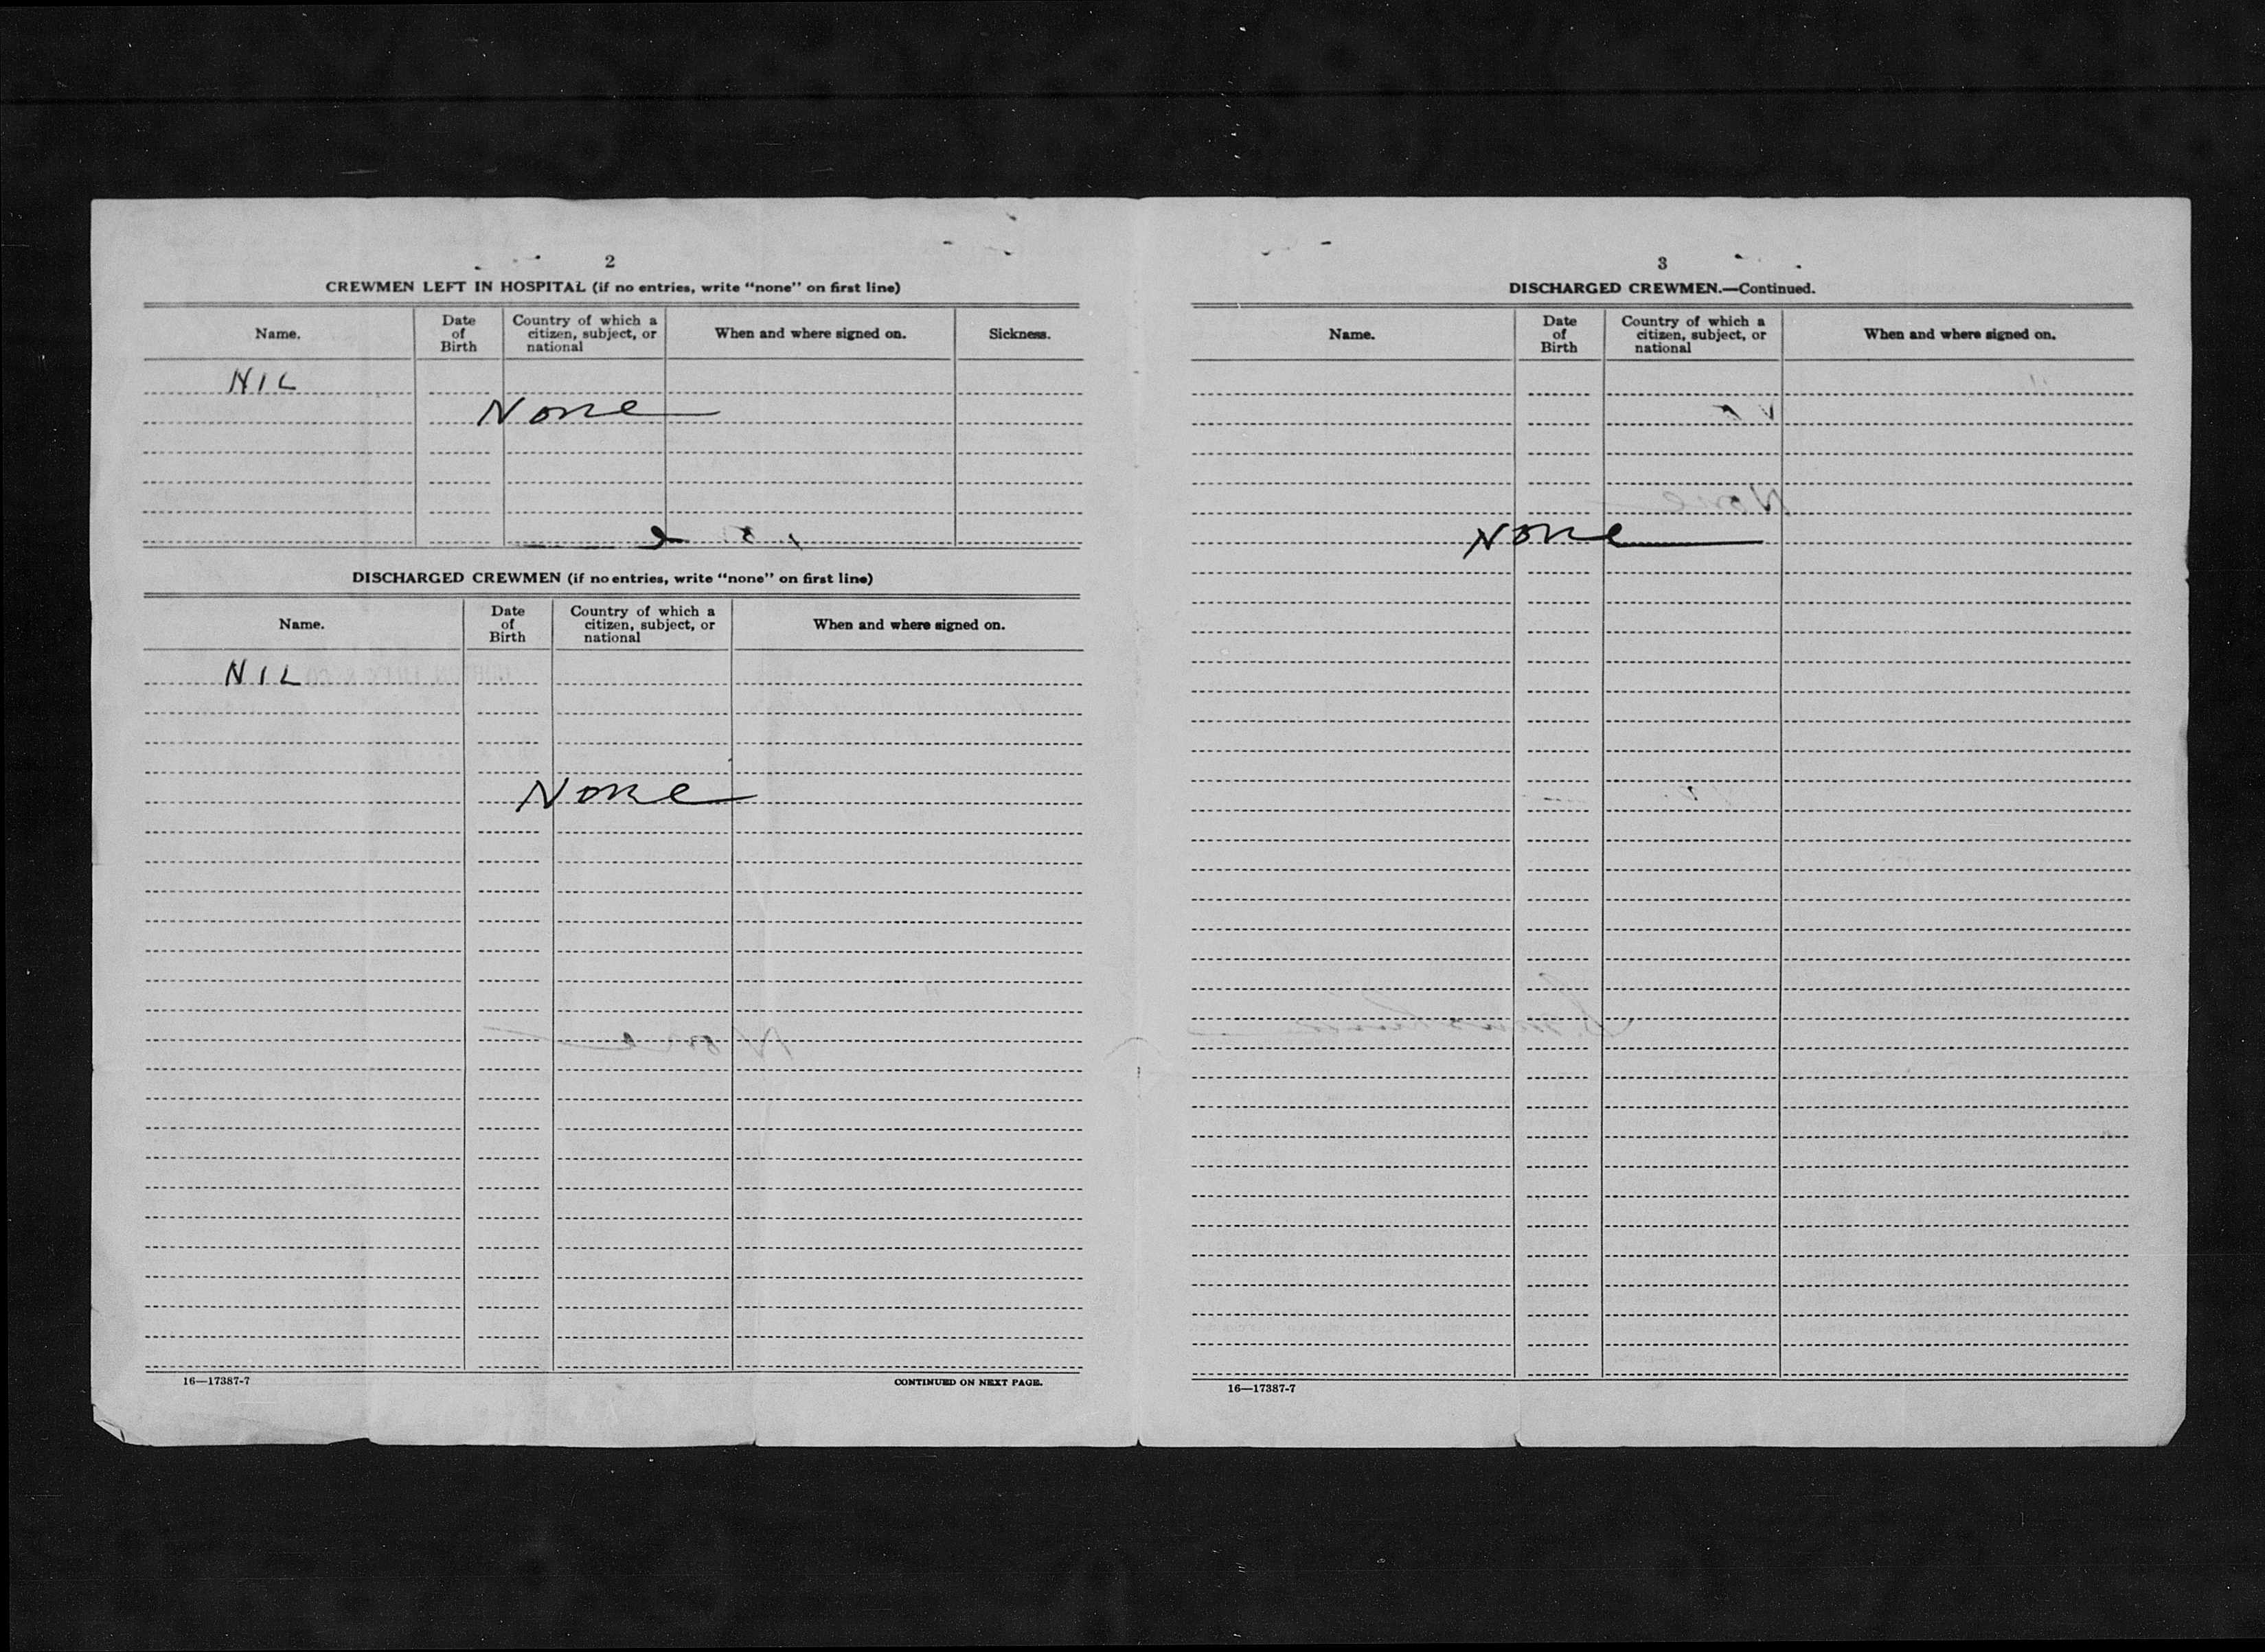 2
CREWMEN LEFT IN HOSPITAL (if no entries, write "none" on first line)
Name. Date of Birth Country of which a citizen, subject, or national When and where signed on. Sickness.
NIL
None
DISCHARGED CREWMEN (if no entries, write "none" on first line)
Name. Date of Birth Country of which a citizen, subject, or national When and where signed on.
NIL
None
16—17387-7 CONTINUED ON NEXT PAGE.
3
DISCHARGED CREWMEN.—Continued.
Name. Date of Birth Country of which a citizen, subject, or national When and where signed on.
None
16—17387-7